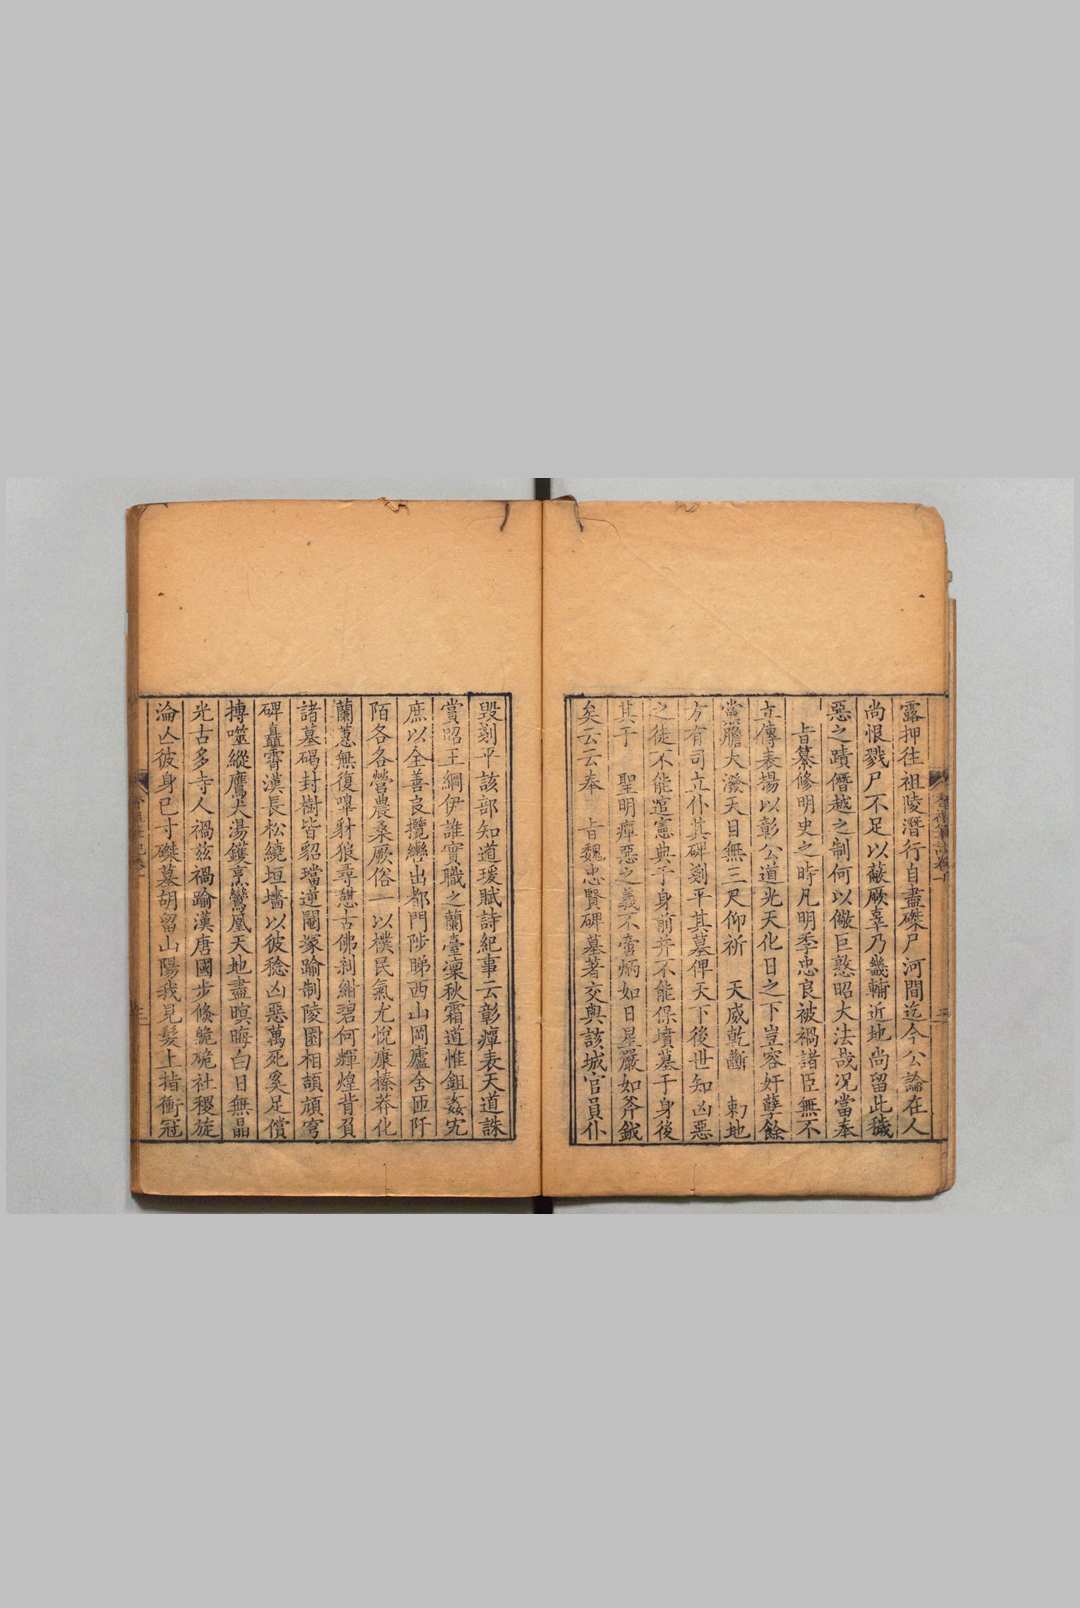 露押往祖陵潛行自盡磔尸河間迄今公論在人
尚恨戮尸不足以蔽厥辜乃畿輔近地尚留此穢
惡之蹟僭越之制何以儆巨憝昭大法哉况當奉
旨纂修明史之時凡明季忠良被禍諸臣無不
立傳表揚以彰公道光天化日之下豈容奸孽餘
黨膽大潑天目無三尺仰祈　天威乾斷　勅地
方有司立仆其碑剗平其墓俾天下後世知凶惡
之徒不能逭憲典于身前并不能保墳墓于身後
其于　聖明癉惡之義不啻炳如日星嚴如斧鉞
矣云云奉　旨魏忠賢碑墓著交與該城官員仆
毀剗平該部知道瑗賦詩紀事云彰癉表天道誅
賞昭王綱伊誰實職之蘭臺凜秋霜道惟鉏姦宄
庶以全善良攬轡出都門陟睇西山岡廬舍匝阡
陌各各營農桑厥俗一以樸民氣尤悅康榛莽化
蘭蕙無復嗥豺狼尋憇古佛刹紺碧何輝煌背負
諸墓碣封樹皆貂璫逆閹塚踰制陵園相頡頏穹
碑矗霄漢長松繞垣墻以彼稔凶惡萬死奚足償
搏噬縱鷹犬湯鑊烹鸞凰天地盡暝晦白日無晶
光古多寺人禍兹禍踰漢唐國步倏臲卼社稷旋
淪亾彼身已寸磔墓胡留山陽我見髮上指衝冠